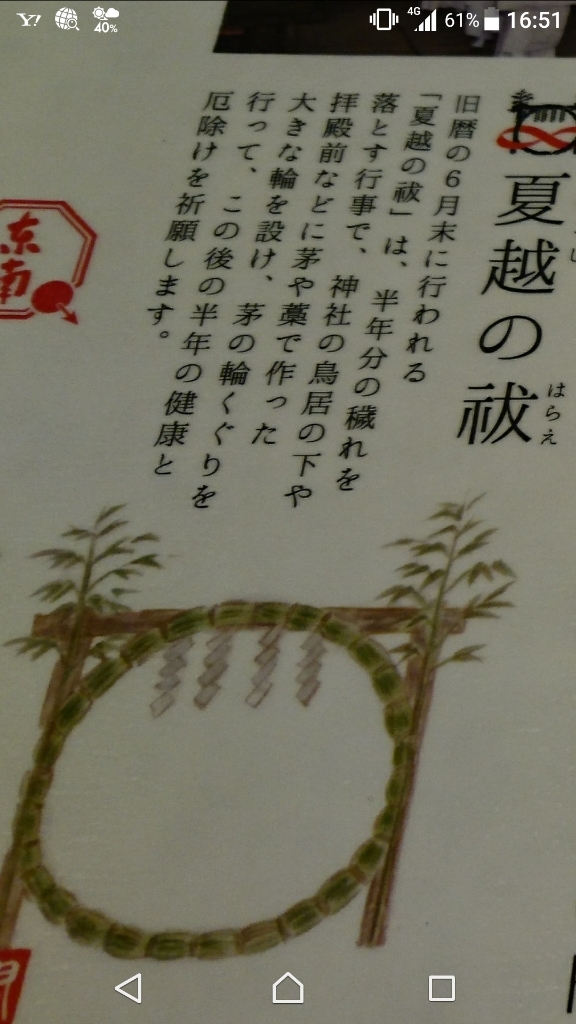 Y!
40%
4G
61%
16:51
夏越の祓
はらえ
旧暦の6月末に行われる
「夏越の祓」は、半年分の穢れを
落とす行事で、神社の鳥居の下や
拝殿前などに茅や藁で作った
大きな輪を設け、茅の輪くぐりを
行って、この後の半年の健康と
厄除けを祈願します。
東南